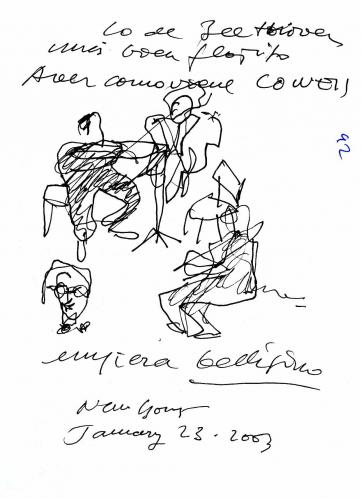 Lo de Beethoven
más bien flojito
A ver como viene COWELL
92
empieza bellísimo
New York
January 23 - 2003